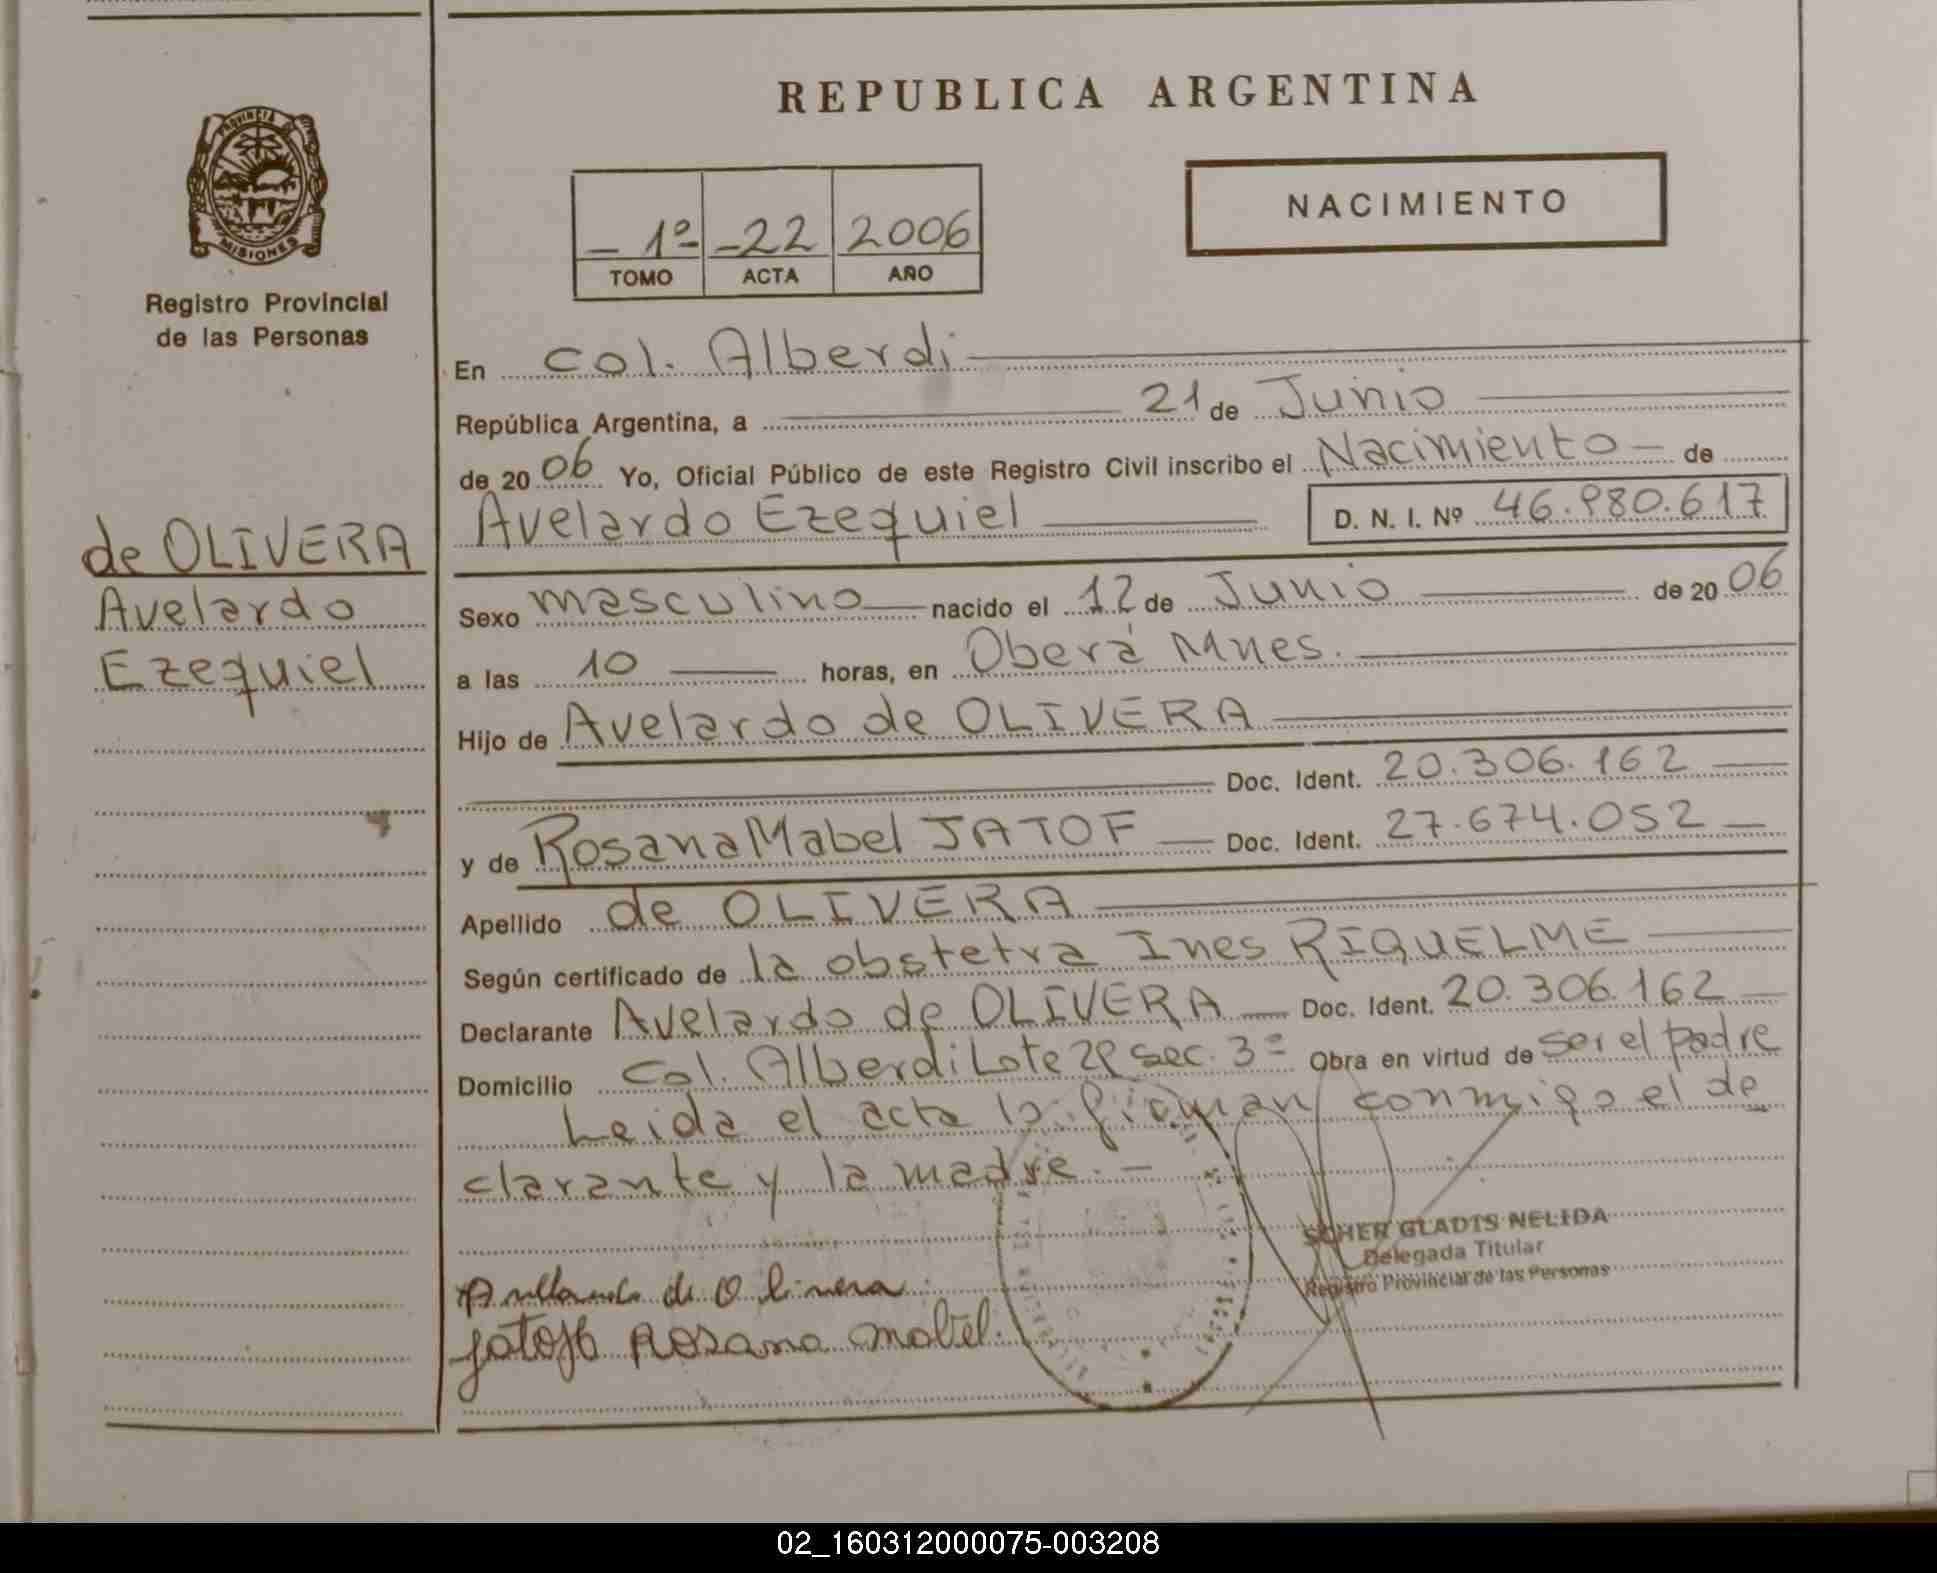 REPUBLICA ARGENTINA
PROVINCIA DE
MISIONES
Registro Provincial
de las Personas
- 1º - -22 2006
TOMO ACTA AÑO
NACIMIENTO
En Col. Alberdi
República Argentina, a 21 de Junio
de 2006 Yo, Oficial Público de este Registro Civil inscribo el Nacimiento - de
Avelardo Ezequiel D. N. I. Nº 46.980.617
de OLIVERA
Avelardo
Ezequiel
Sexo masculino nacido el 12 de Junio de 2006
a las 10 horas, en Oberá Mnes.
Hijo de Avelardo de OLIVERA
Doc. Ident. 20.306.162
y de Rosana Mabel JATOF Doc. Ident. 27.674.052
Apellido de OLIVERA
Según certificado de la obstetra Ines RIQUELME
Declarante Avelardo de OLIVERA Doc. Ident. 20.306.162
Domicilio Col. Alberdi Lote 28 sec. 3º Obra en virtud de ser el padre
Leida el acta la firman conmigo el de
clarante y la madre. -
SCHER GLADIS NELIDA
Delegada Titular
Registro Provincial de las Personas
de Olivera
Rosana Mabel.
02_160312000075-003208